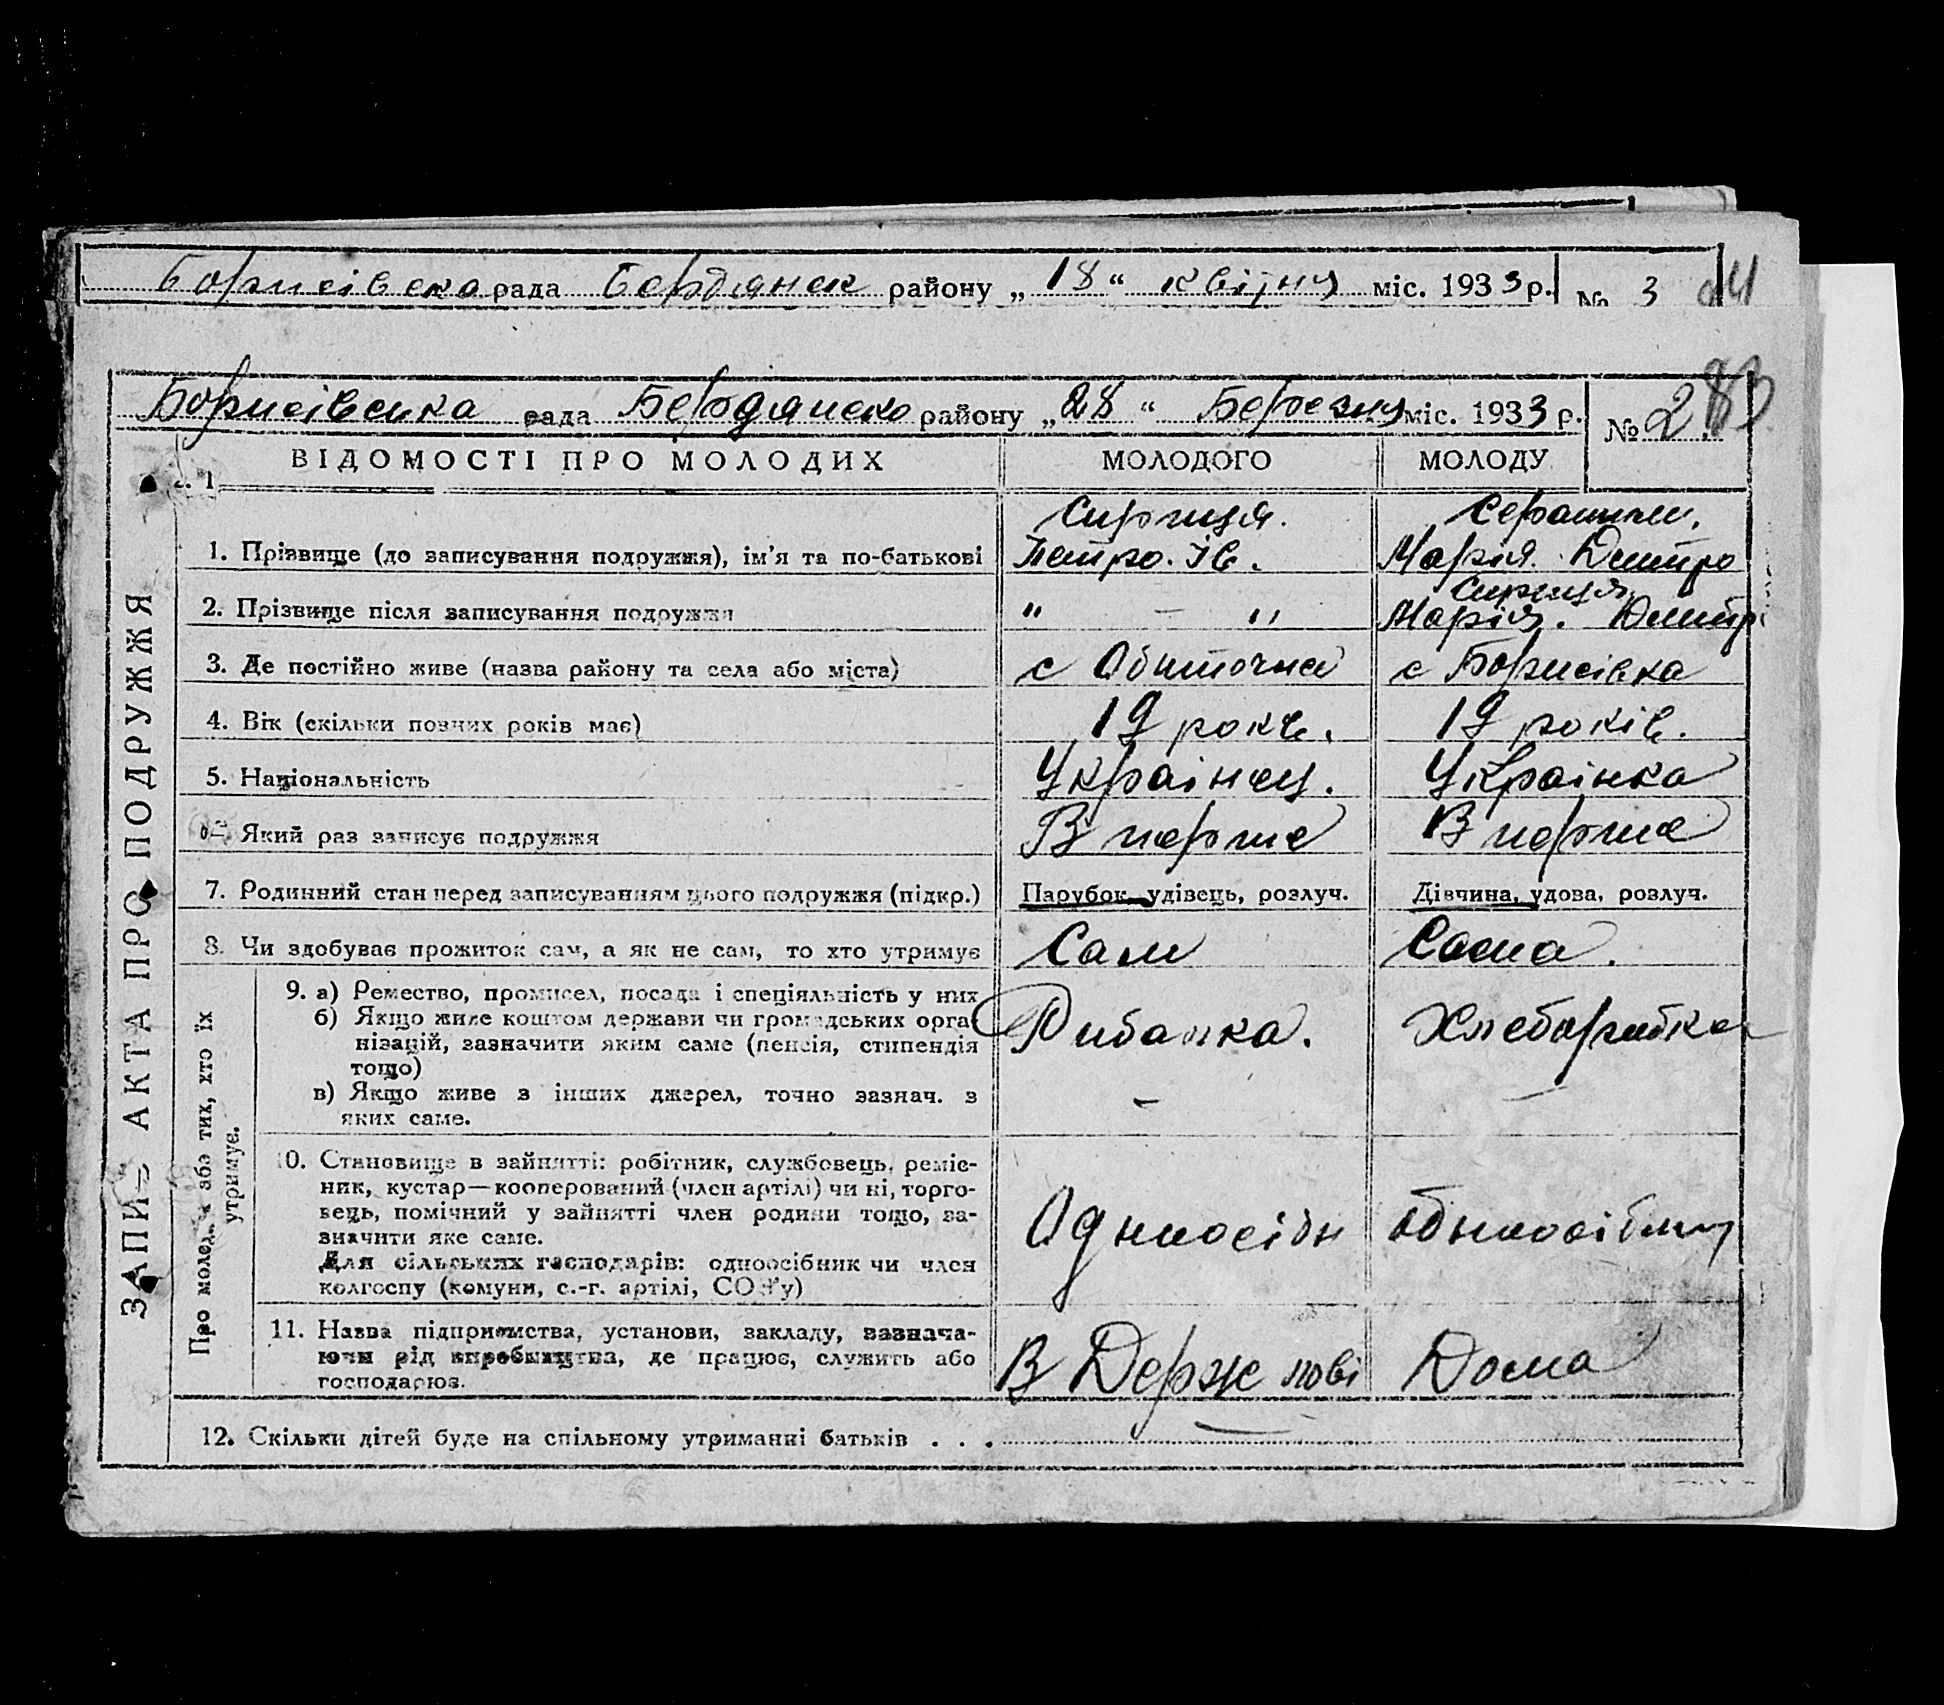 Борисівска рада Бердянск району „18“ квітну міс. 1933 р. № 3
Борисівська рада Бердянско району „28“ Березну міс. 1933 р. № 2
ВІДОМОСТІ ПРО МОЛОДИХ МОЛОДОГО МОЛОДУ
1. Прізвище (до записування подружжя), ім'я та по-батькові
Петро. Ів. Марія. Дмитро
2. Прізвище після записування подружжя " — " Марія. Дмитр
3. Де постійно живе (назва району та села або міста) с Обиточна с Борисівка
4. Вік (скільки повних років має) 19 років. 19 років.
5. Національність Украінец. Украінка
Який раз записує подружжя В перше В перше
7. Родинний стан перед записуванням цього подружжя (підкр.) Парубок, удівець, розлуч. Дівчина, удова, розлуч.
8. Чи здобуває прожиток сам, а як не сам, то хто утримує Сам Сама.
9. а) Ремество, промисел, посада і спеціяльність у них
б) Якщо живе коштом держави чи громадських орга-
нізацій, зазначити яким саме (пенсія, стипендія Рибалка.
тощо)
в) Якщо живе з інших джерел, точно зазнач. з —
яких саме.
10. Становище в зайнятті: робітник, службовець, реміс-
ник, кустар—кооперований (член артілі) чи ні, торго-
вець, помічний у зайнятті член родини тощо, за-
значити яке саме.
Для сільських господарів: одноосібник чи член
колгоспу (комуни, с.-г. артілі, СОЗ'у)
11. Назва підприємства, установи, закладу, зазнача-
ючи рід виробництва, де працює, служить або В Держ лові Дома
господарює.
12. Скільки дітей буде на спільному утриманні батьків . . . —
ЗАПИС АКТА ПРО ПОДРУЖЖЯ
Про молодих або тих, хто їх
утримує.